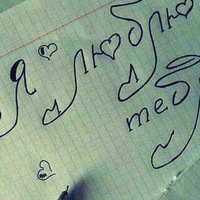 Я люблю
теб